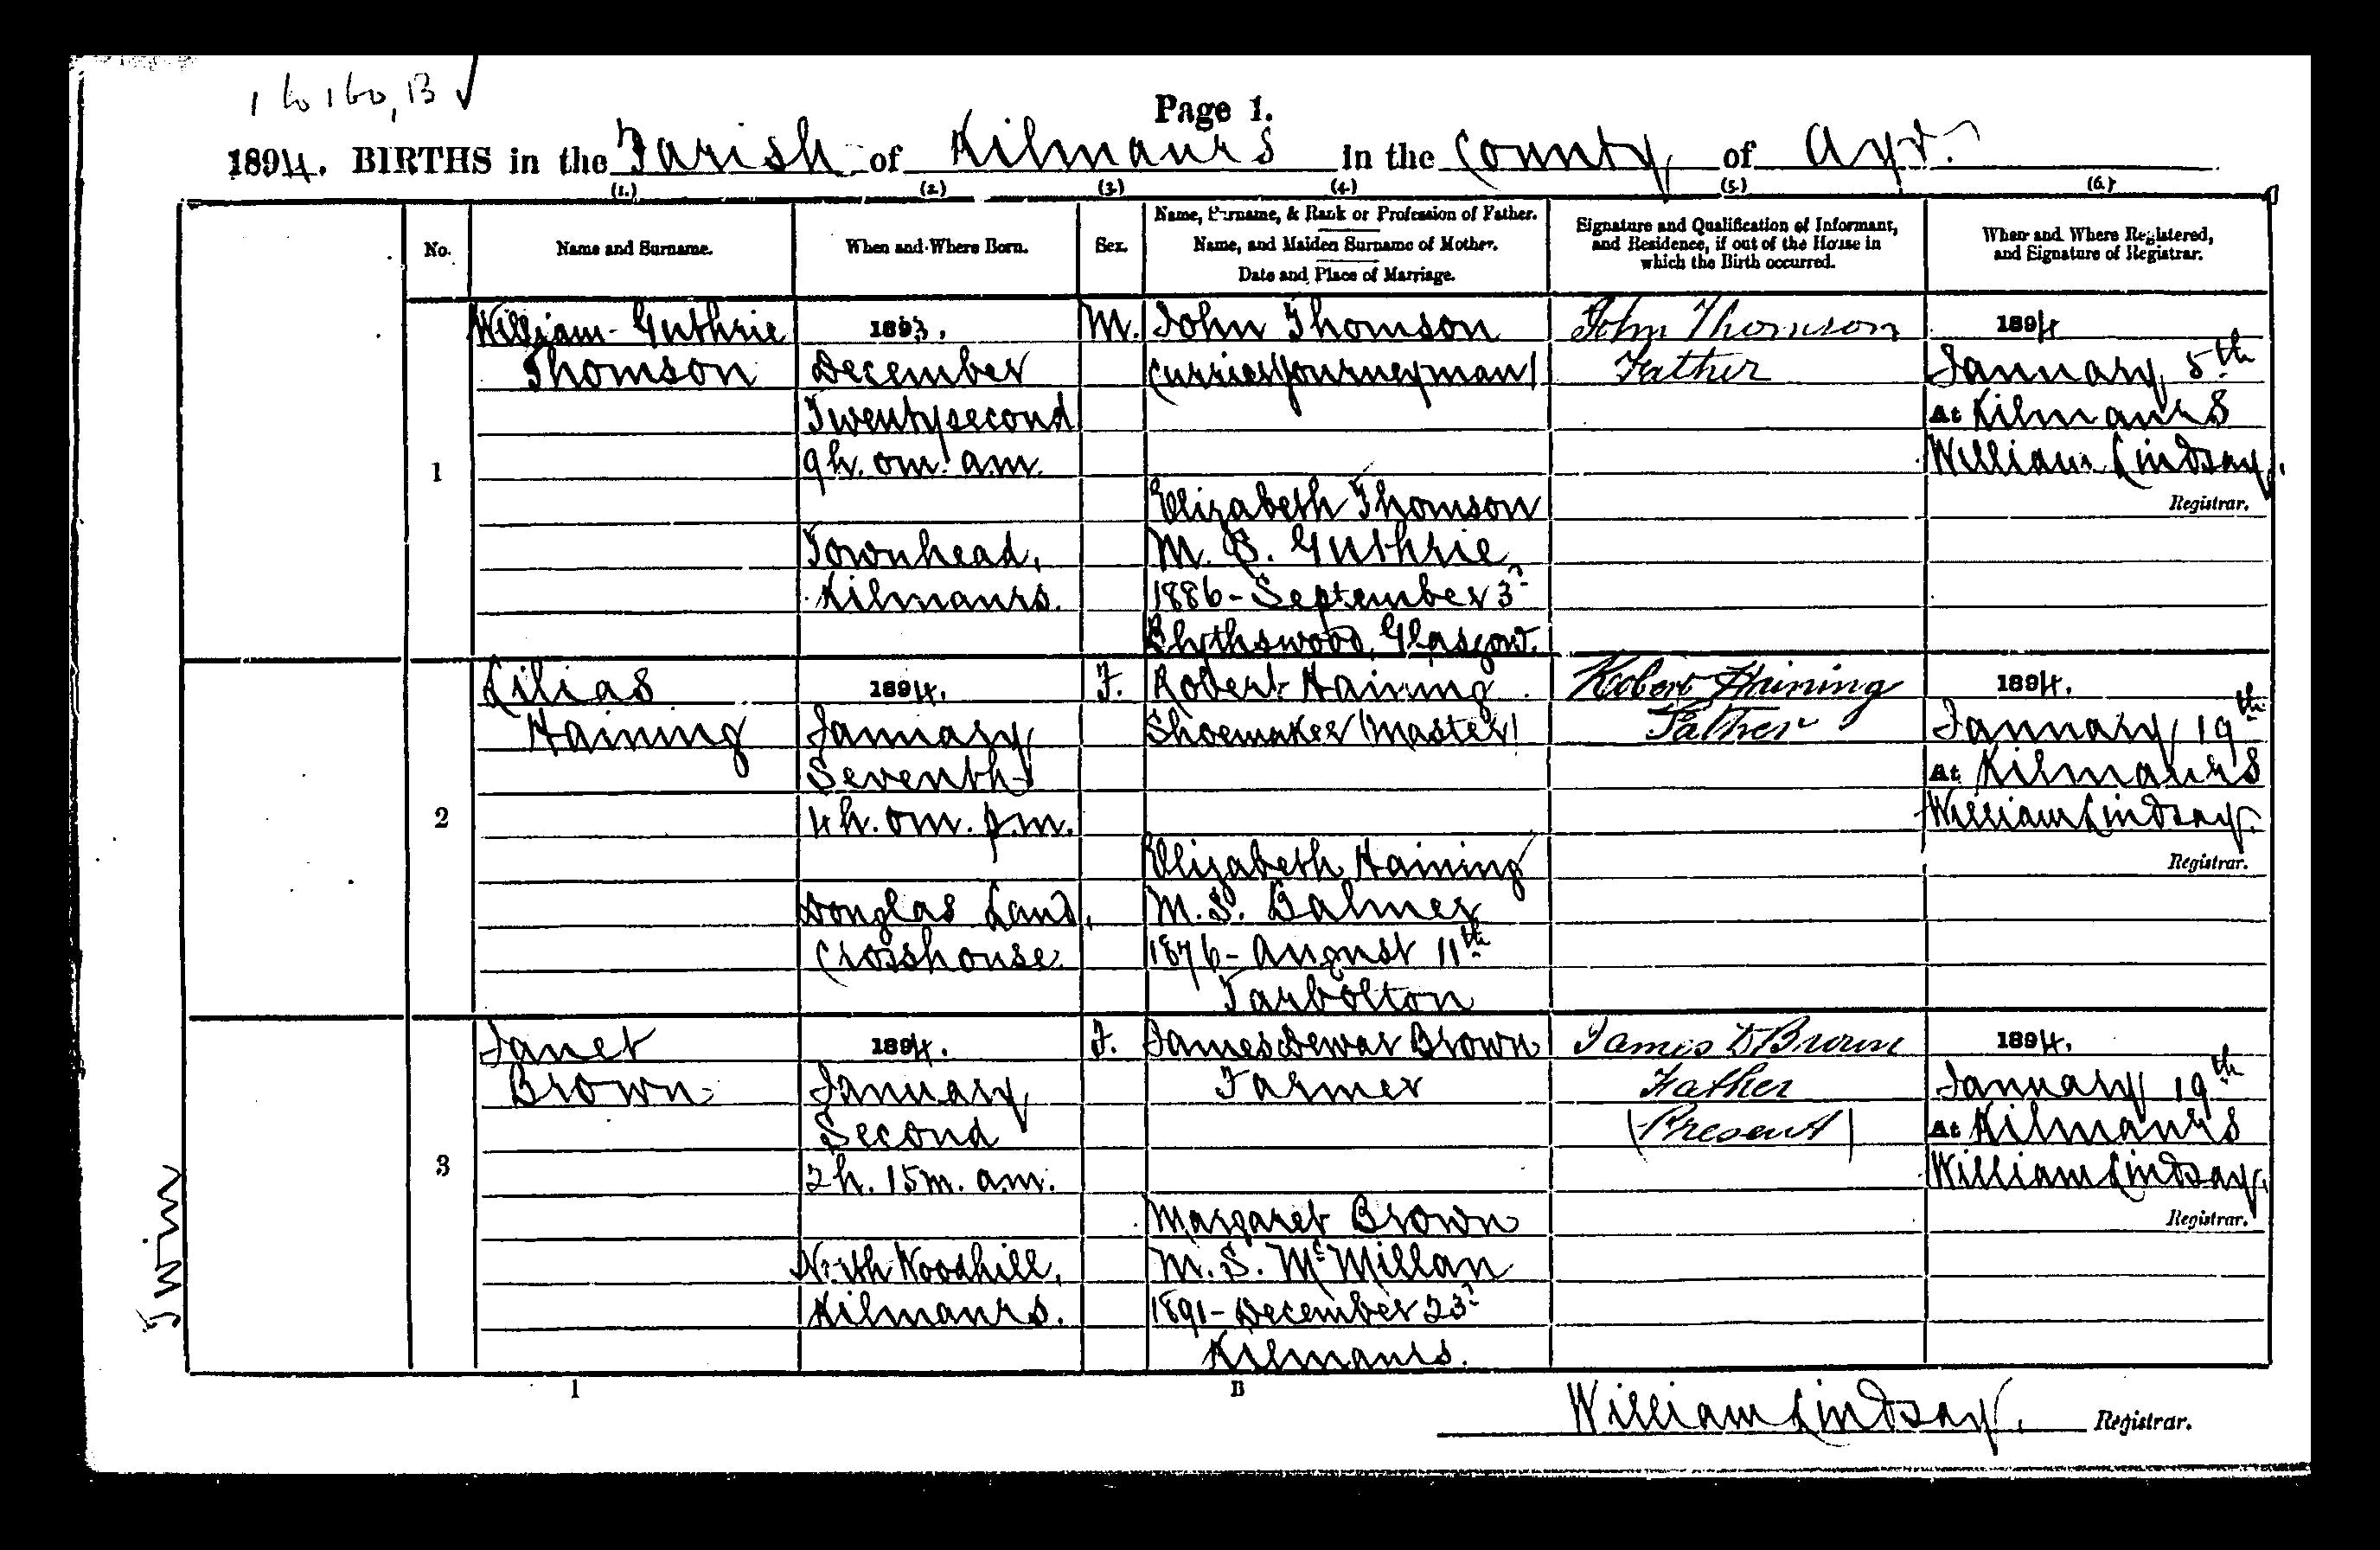 1 to 160, B √
Page 1.
1894. BIRTHS in the Parish of Kilmaurs in the County of Ayr.
(1.) (2.) (3.) (4.) (5.) (6.)
No.
Name and Surname.
When and Where Born.
Sex.
Name, Surname, & Rank or Profession of Father.
Name, and Maiden Surname of Mother.
Date and Place of Marriage.
Signature and Qualification of Informant,
and Residence, if out of the House in
which the Birth occurred.
When and Where Registered,
and Signature of Registrar.
1
William Guthrie
Thomson
1893.
December
Twentysecond
9h. 0m. a.m.
Townhead,
Kilmaurs.
M.
John Thomson
Currier (Journeyman)
Elizabeth Thomson
M.S. Guthrie
1886 - September 3d
Blythswood, Glasgow.
John Thomson
Father
1894
January 5th
At Kilmaurs
William Lindsay,
Registrar.
2
Lilias
Haining
1894.
January
Seventh
4h. 0m. p.m.
Douglas Land,
Crosshouse.
F.
Robert Haining
Shoemaker (Master)
Elizabeth Haining
M.S. Balmer
1876 - August 11th
Tarbolton
Robert Haining
Father
1894.
January 19th
At Kilmaurs
William Lindsay.
Registrar.
3
Twin
Janet
Brown
1894.
January
Second
2h. 15m. a.m.
North Woodhill,
Kilmaurs.
F.
James Dewar Brown
Farmer
Margaret Brown
M.S. McMillan
1891 - December 23d
Kilmaurs.
James D Brown
Father
(Present)
1894.
January 19th
At Kilmaurs
William Lindsay,
Registrar.
1
B
William Lindsay. Registrar.